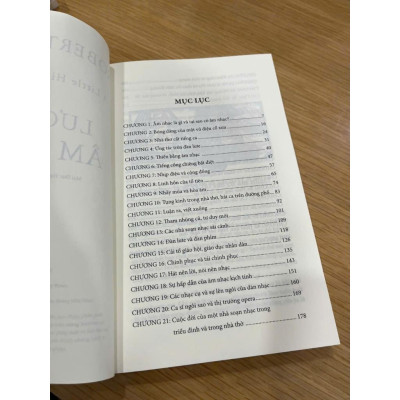 OBERT
Little Hi
LƯỢ
ÂM
MỤC LỤC
CHƯƠNG 1: Âm nhạc là gì và tại sao có âm nhạc?
CHƯƠNG 2: Rung động của một vũ điệu cổ xưa 16
CHƯƠNG 3: Nhà thơ cất tiếng ca 24
CHƯƠNG 4: Ứng tác trên đàn
CHƯƠNG 5: Thiên hăng âm nhạc 40
CHƯƠNG 6: Tiếng công chiêng bất diệt 47
CHƯƠNG 7: Nhịp điệu và cộng đồng 57
CHƯƠNG 8: Linh hồn của tổ tiên 65
CHƯƠNG 9: Nhảy múa và hòa tan 74
CHƯƠNG 10: Tụng kinh trong nhà thờ, hát ca trên đường phố 81
CHƯƠNG 11: Luật ra, viết xuống 91
CHƯƠNG 12: Tham nhũng cả, trị duy một 101
CHƯƠNG 13: Các nhà soạn nhạc tài cánh 109
CHƯƠNG 14: Đàn lute và đàn phím 118
CHƯƠNG 15: Cải tổ giáo hội, giáo dục nhân dân 126
CHƯƠNG 16: Chinh phục và tái chinh phục 135
CHƯƠNG 17: Hát nên lời, nói nên nhạc 143
CHƯƠNG 18: Sự hấp dẫn của âm nhạc kịch tính 151
CHƯƠNG 19: Các nhạc cụ và sự lên ngôi của dàn nhạc 160
CHƯƠNG 20: Ca sĩ ngôi sao và thị trường opera 169
CHƯƠNG 21: Cuộc đời của một nhà soạn nhạc trong
triều đình và trong nhà thờ 178